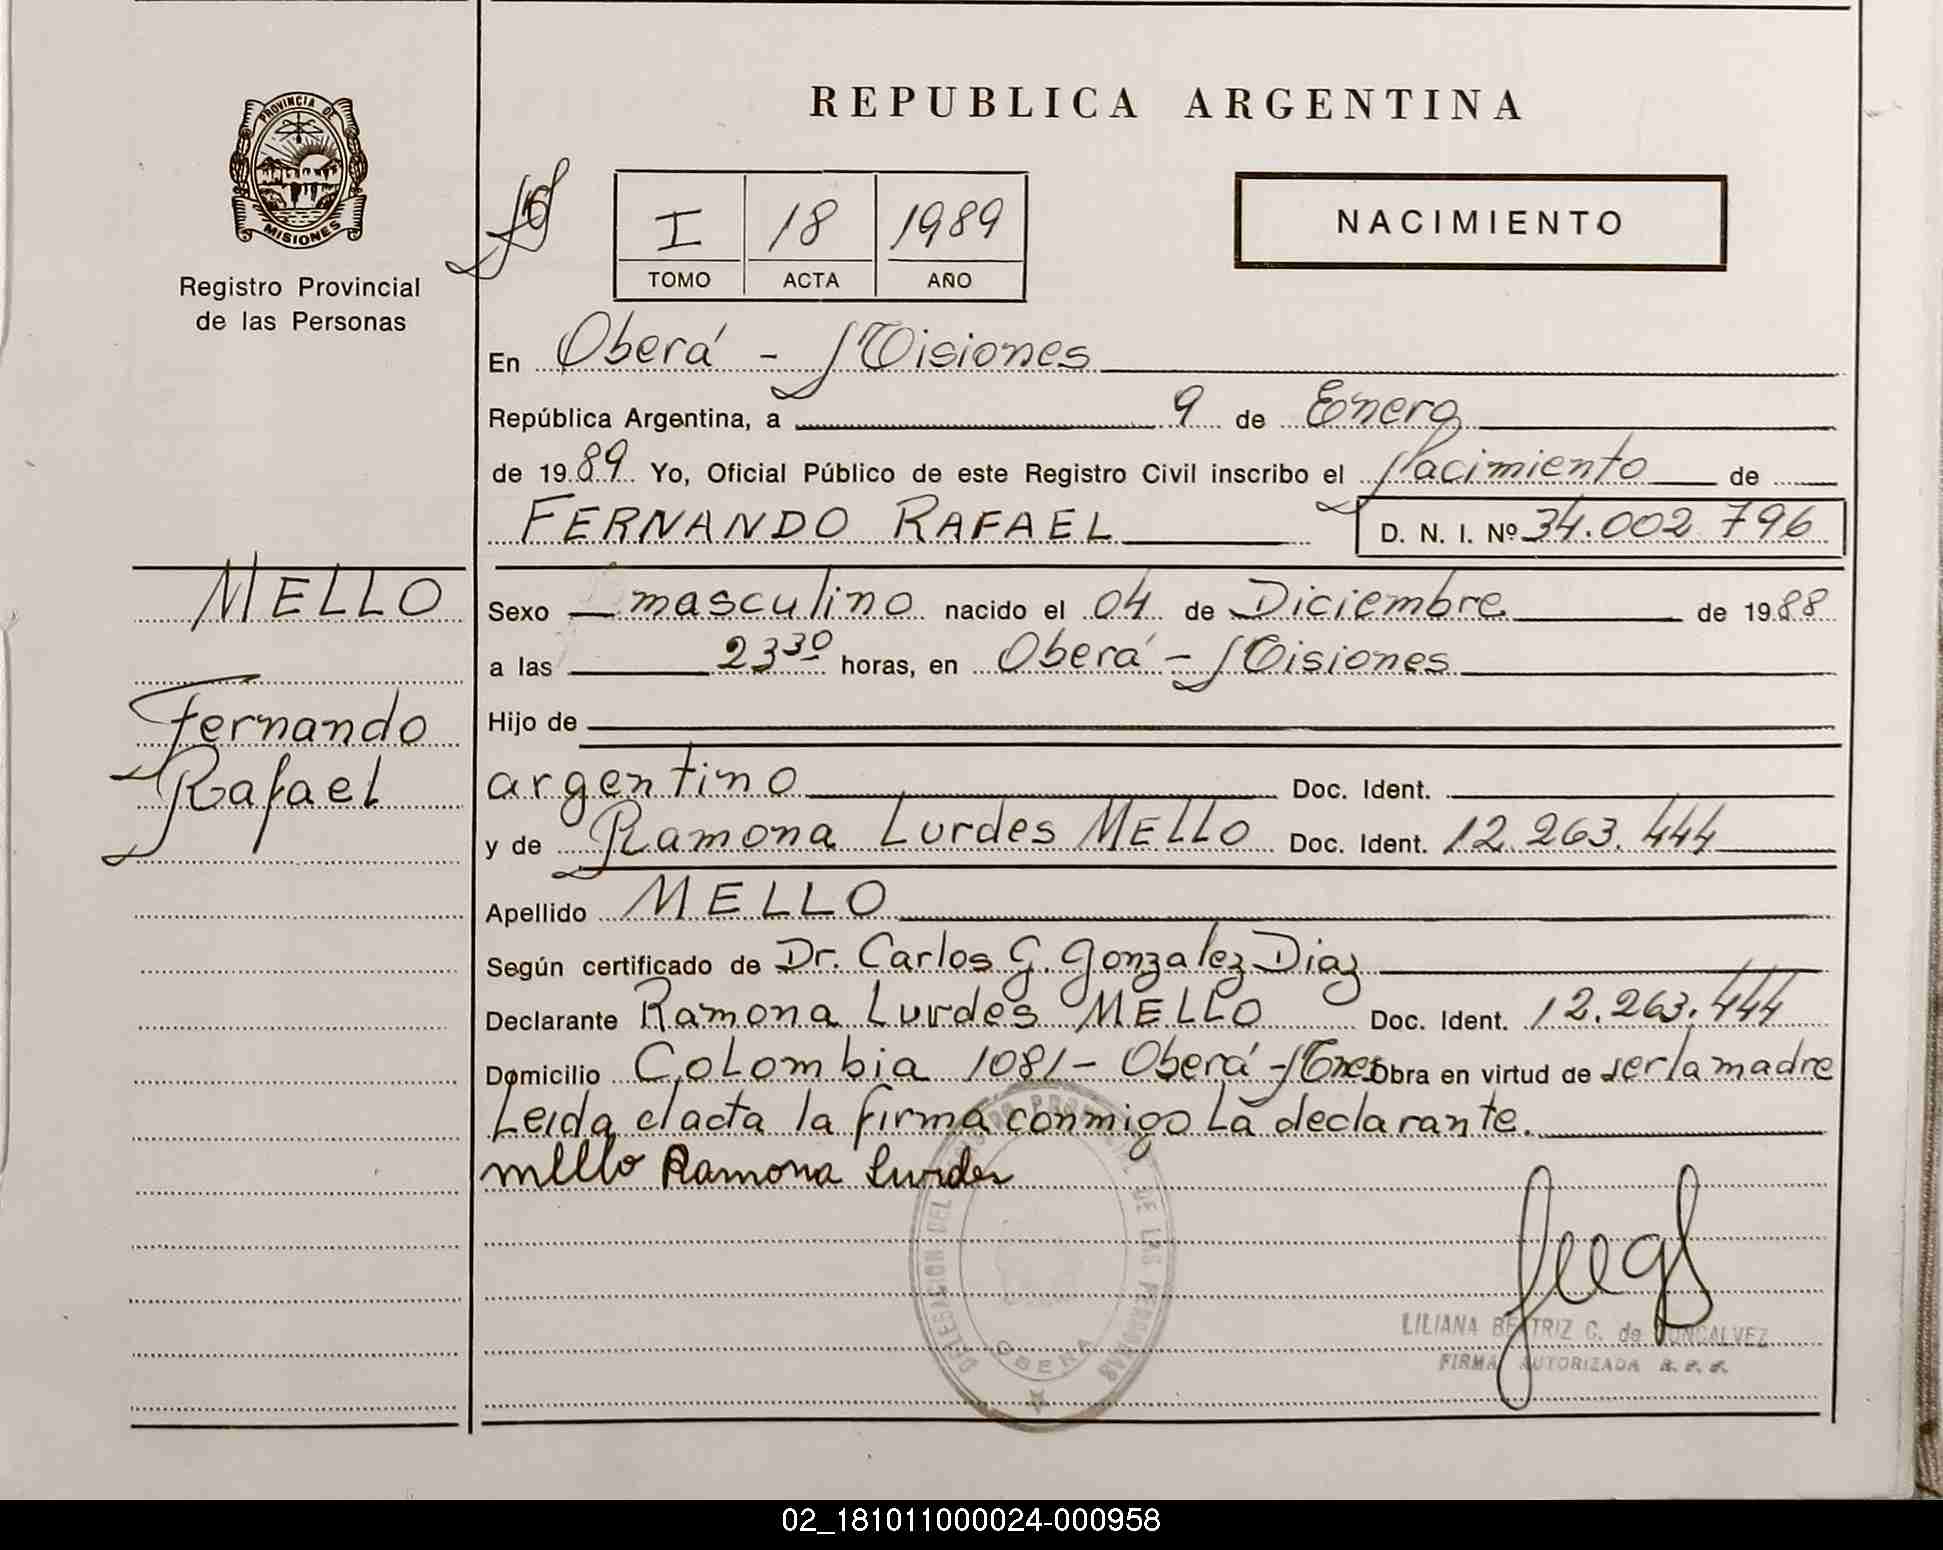 PROVINCIA DE
MISIONES
Registro Provincial
de las Personas
REPUBLICA ARGENTINA
I 18 1989
TOMO ACTA AÑO
NACIMIENTO
En Oberá - Misiones
República Argentina, a 9 de Enero
de 1989 Yo, Oficial Público de este Registro Civil inscribo el Nacimiento de
FERNANDO RAFAEL D. N. I. Nº 34.002.796
MELLO
Fernando
Rafael
Sexo masculino nacido el 04 de Diciembre de 1988
a las 23 30 horas, en Oberá - Misiones
Hijo de
argentino Doc. Ident.
y de Ramona Lurdes MELLO Doc. Ident. 12.263.444
Apellido MELLO
Según certificado de Dr. Carlos G. Gonzalez Diaz
Declarante Ramona Lurdes MELLO Doc. Ident. 12.263.444
Domicilio Colombia 1081 - Oberá - Mnes Obra en virtud de ser la madre
Leida el acta la firma conmigo La declarante.
Mello Ramona Lurdes
DELEGACION DEL REGISTRO PROVINCIAL DE LAS PERSONAS
OBERA
LILIANA BEATRIZ C. de GONCALVEZ
FIRMA AUTORIZADA
02_181011000024-000958